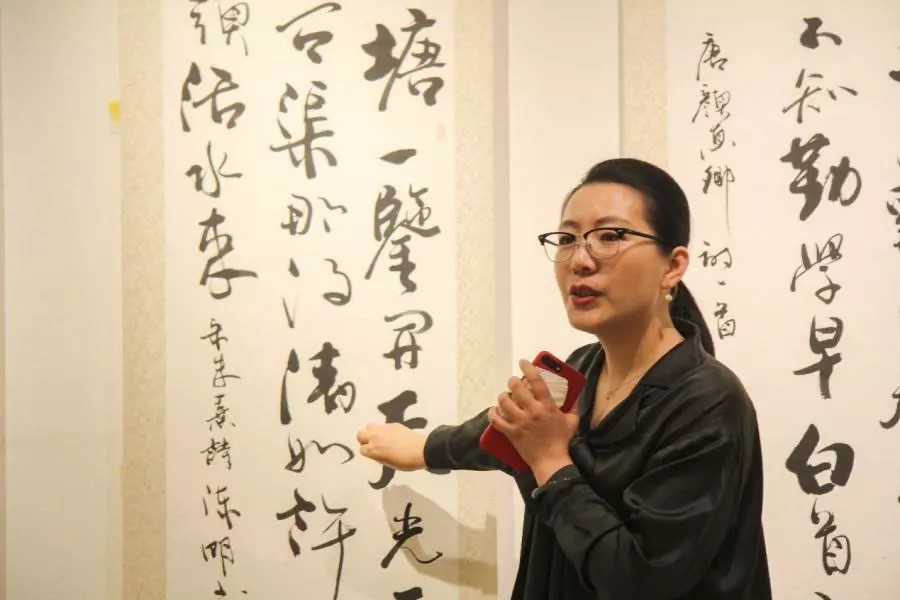 不知勤學早白首
唐顏真卿詩一首
塘一鑒開天光
問渠那得清如許
頭活水來
宋朱熹詩 陳明